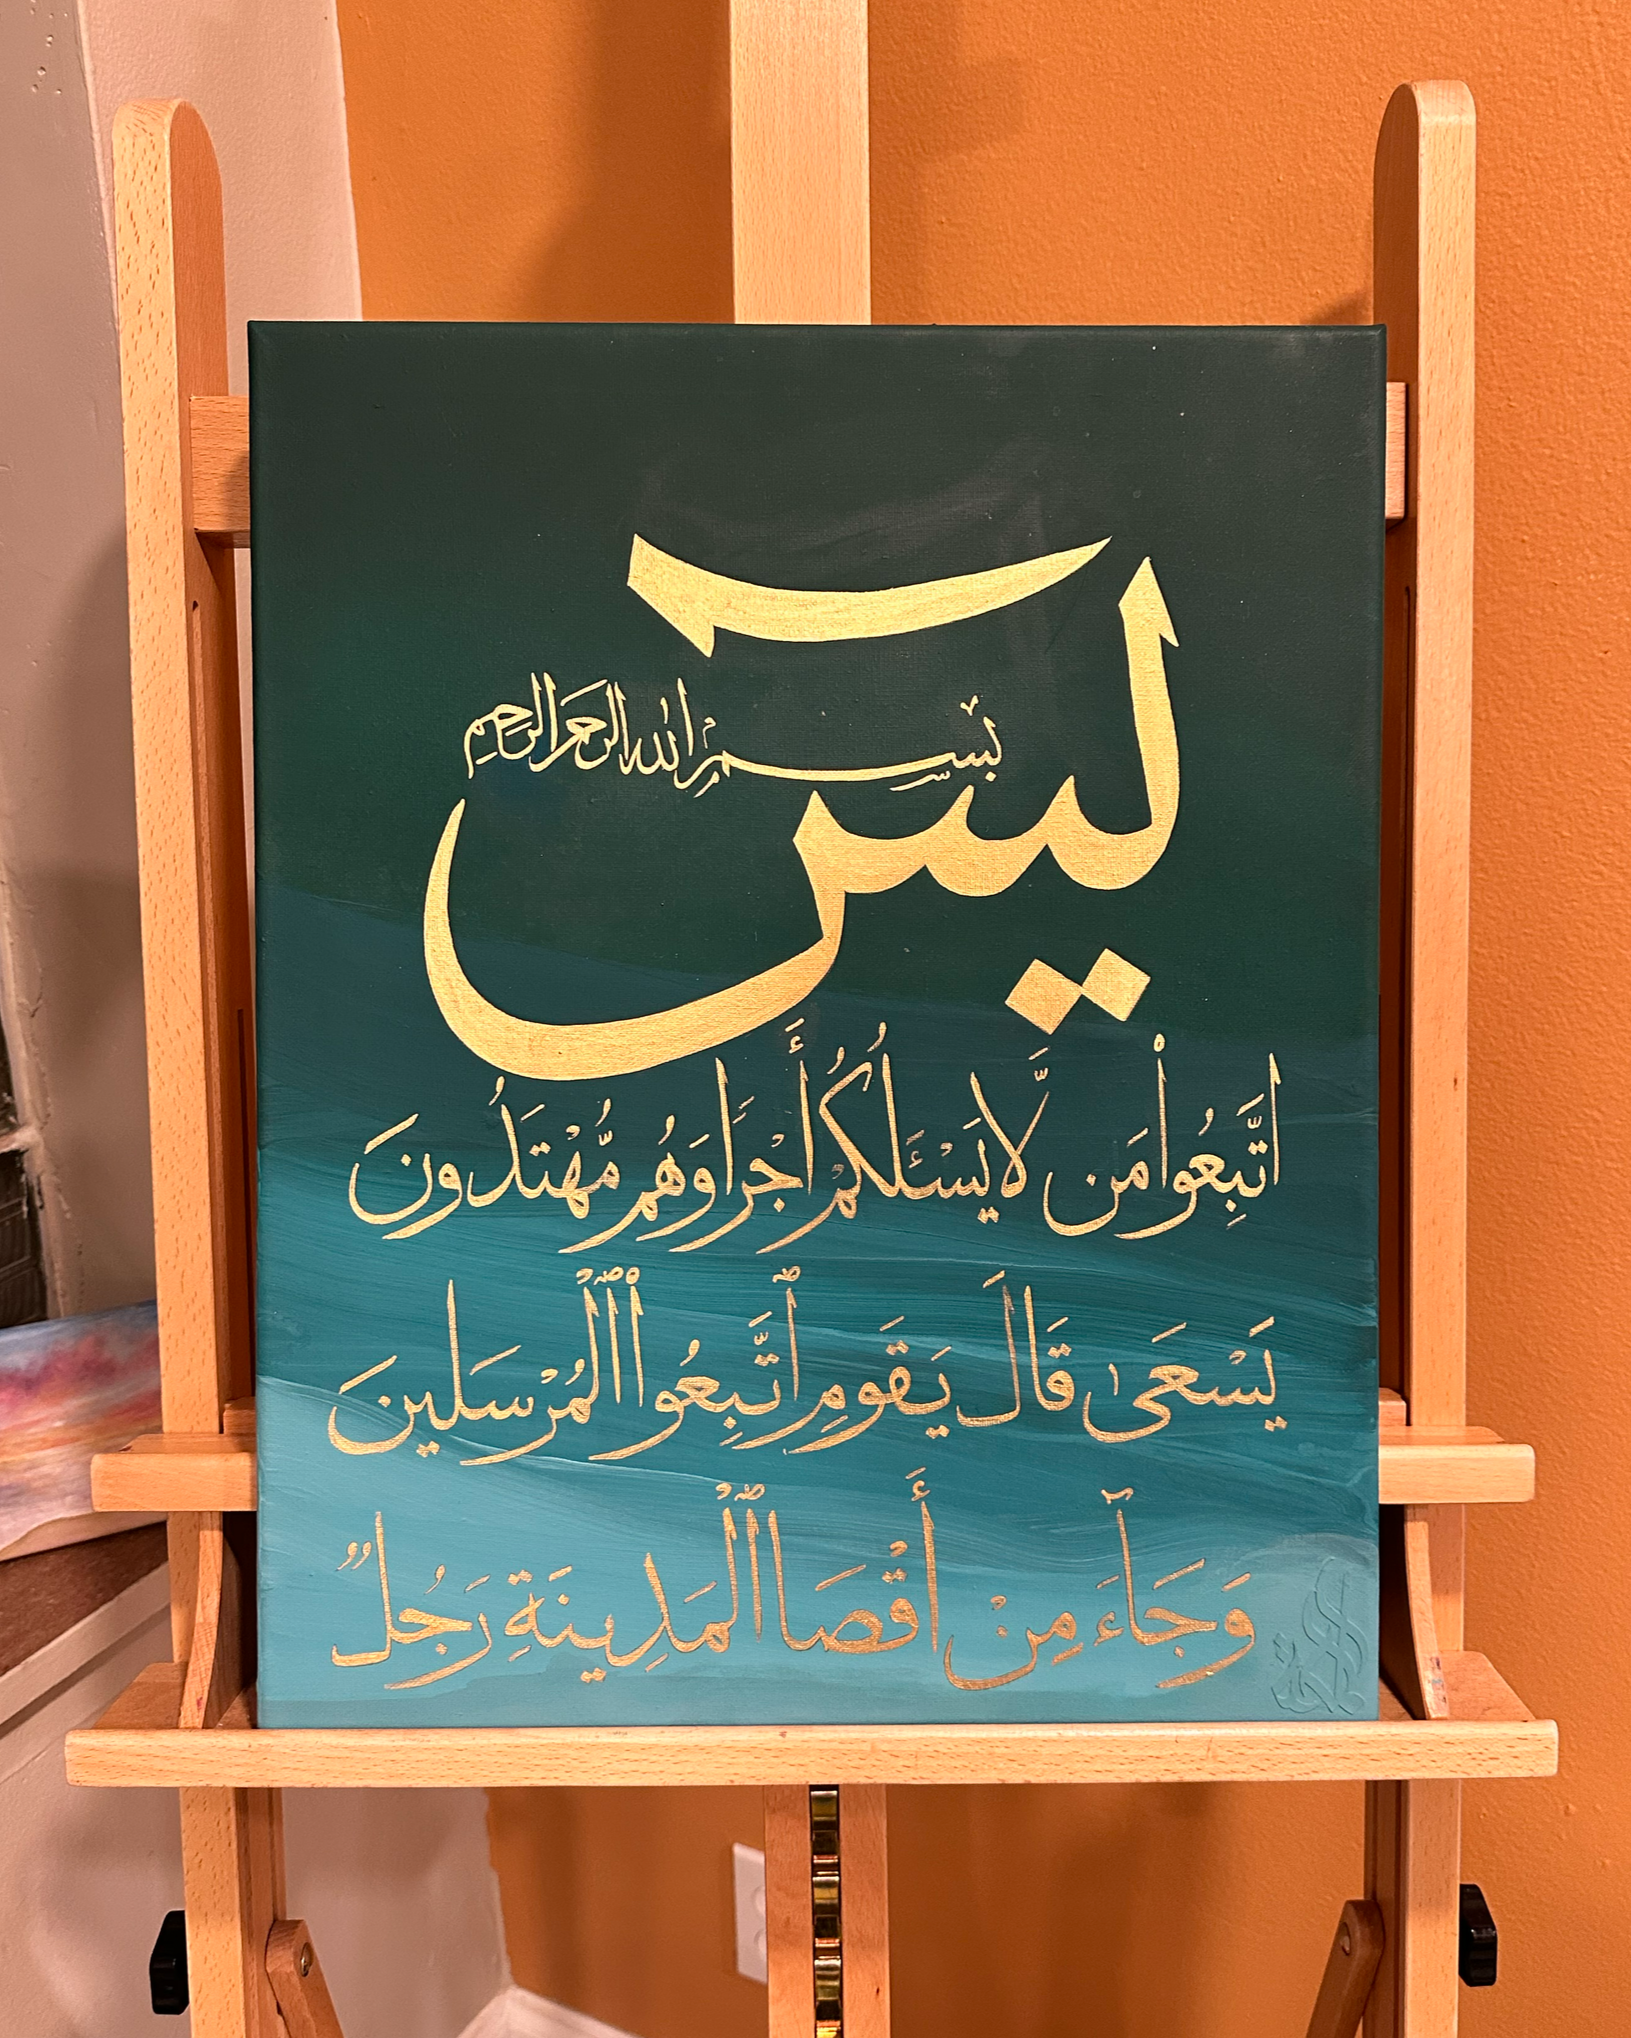 يسٓ
بسم الله الرحمن الرحيم
ٱتَّبِعُوا۟ مَن لَّا يَسْـَٔلُكُمْ أَجْرًا وَهُم مُّهْتَدُونَ
يَسْعَىٰ قَالَ يَقَومِ ٱتَّبِعُوا۟ ٱلْمُرْسَلِينَ
وَجَآءَ مِنْ أَقْصَا ٱلْمَدِينَةِ رَجُلٌ